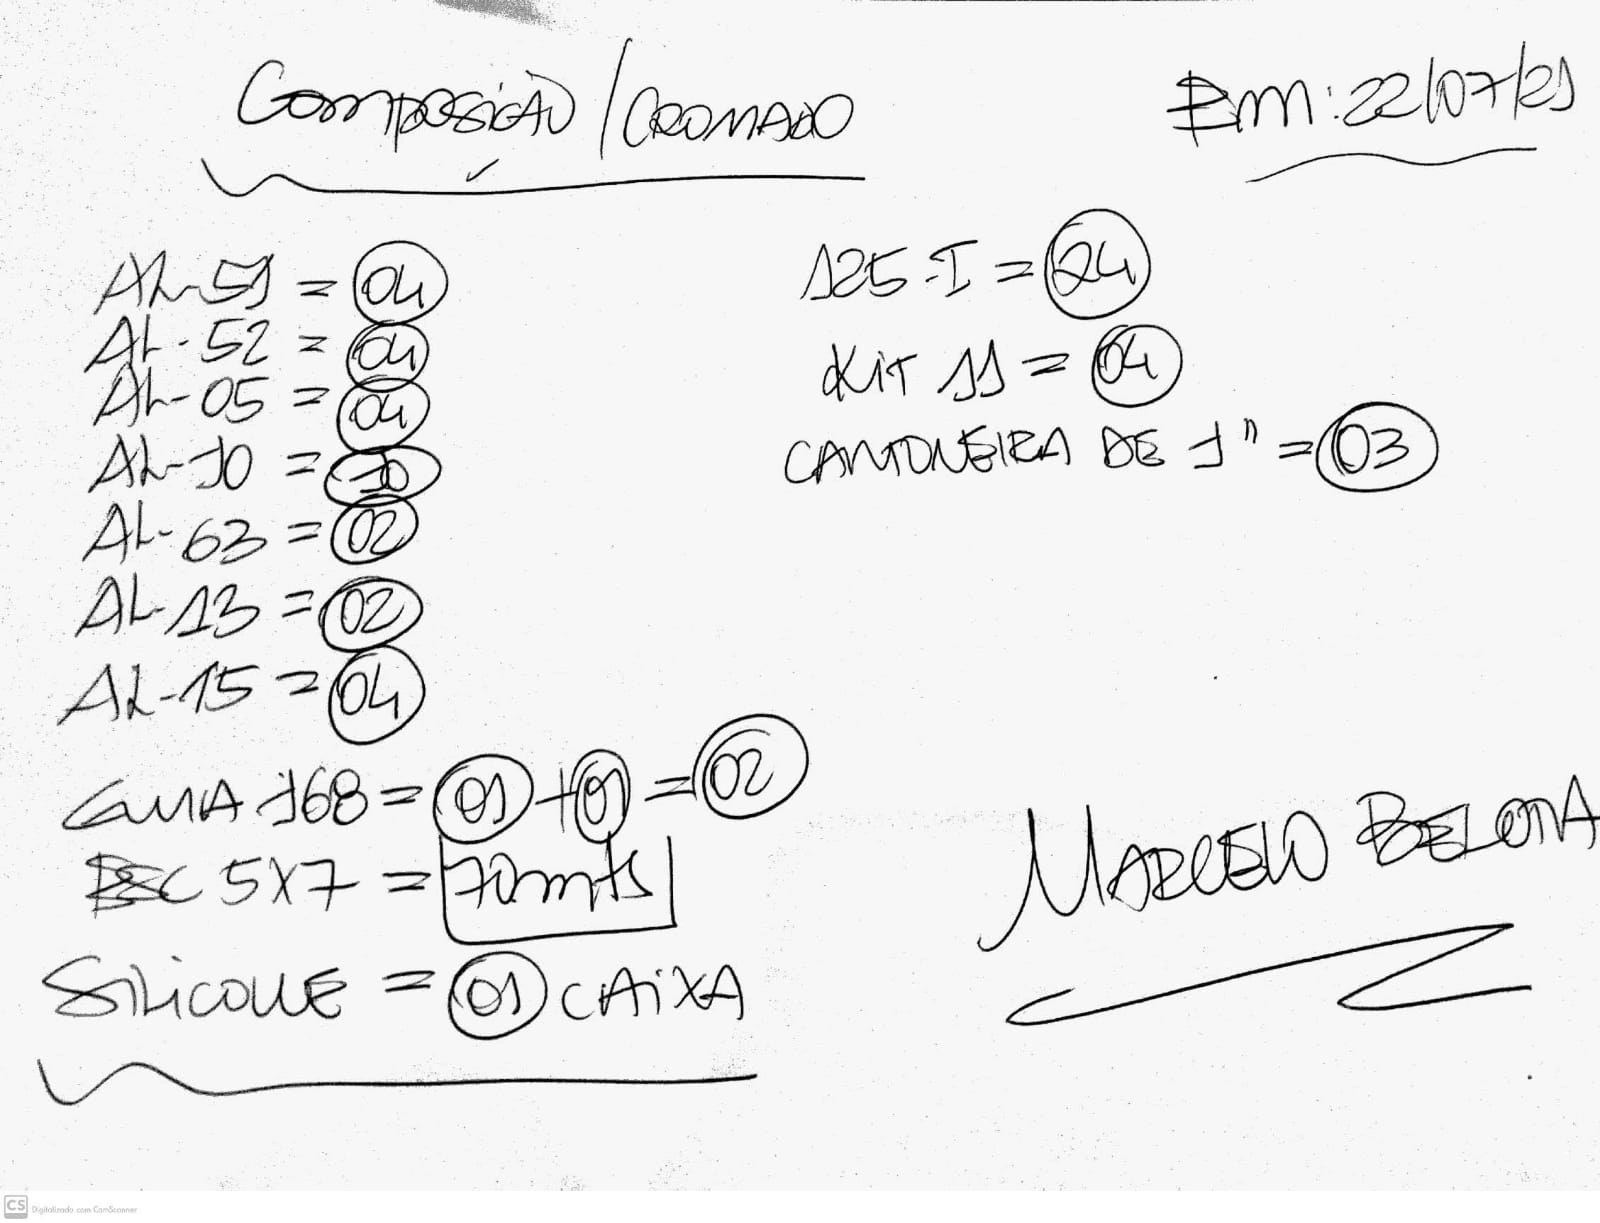 Composição / CROMADO
Em: 22/07/21
AL-51 = 04
AL-52 = 04
AL-05 = 04
AL-10 = 10
AL-63 = 02
AL-13 = 02
AL-15 = 04
GUIA 168 = 01 + 01 = 02
ESC 5X7 = 70 mts
SILICONE = 01 CAIXA
125-I = 24
KIT 11 = 04
CANTONEIRA DE 1" = 03
MARCELO
CS Digitalizado com CamScanner